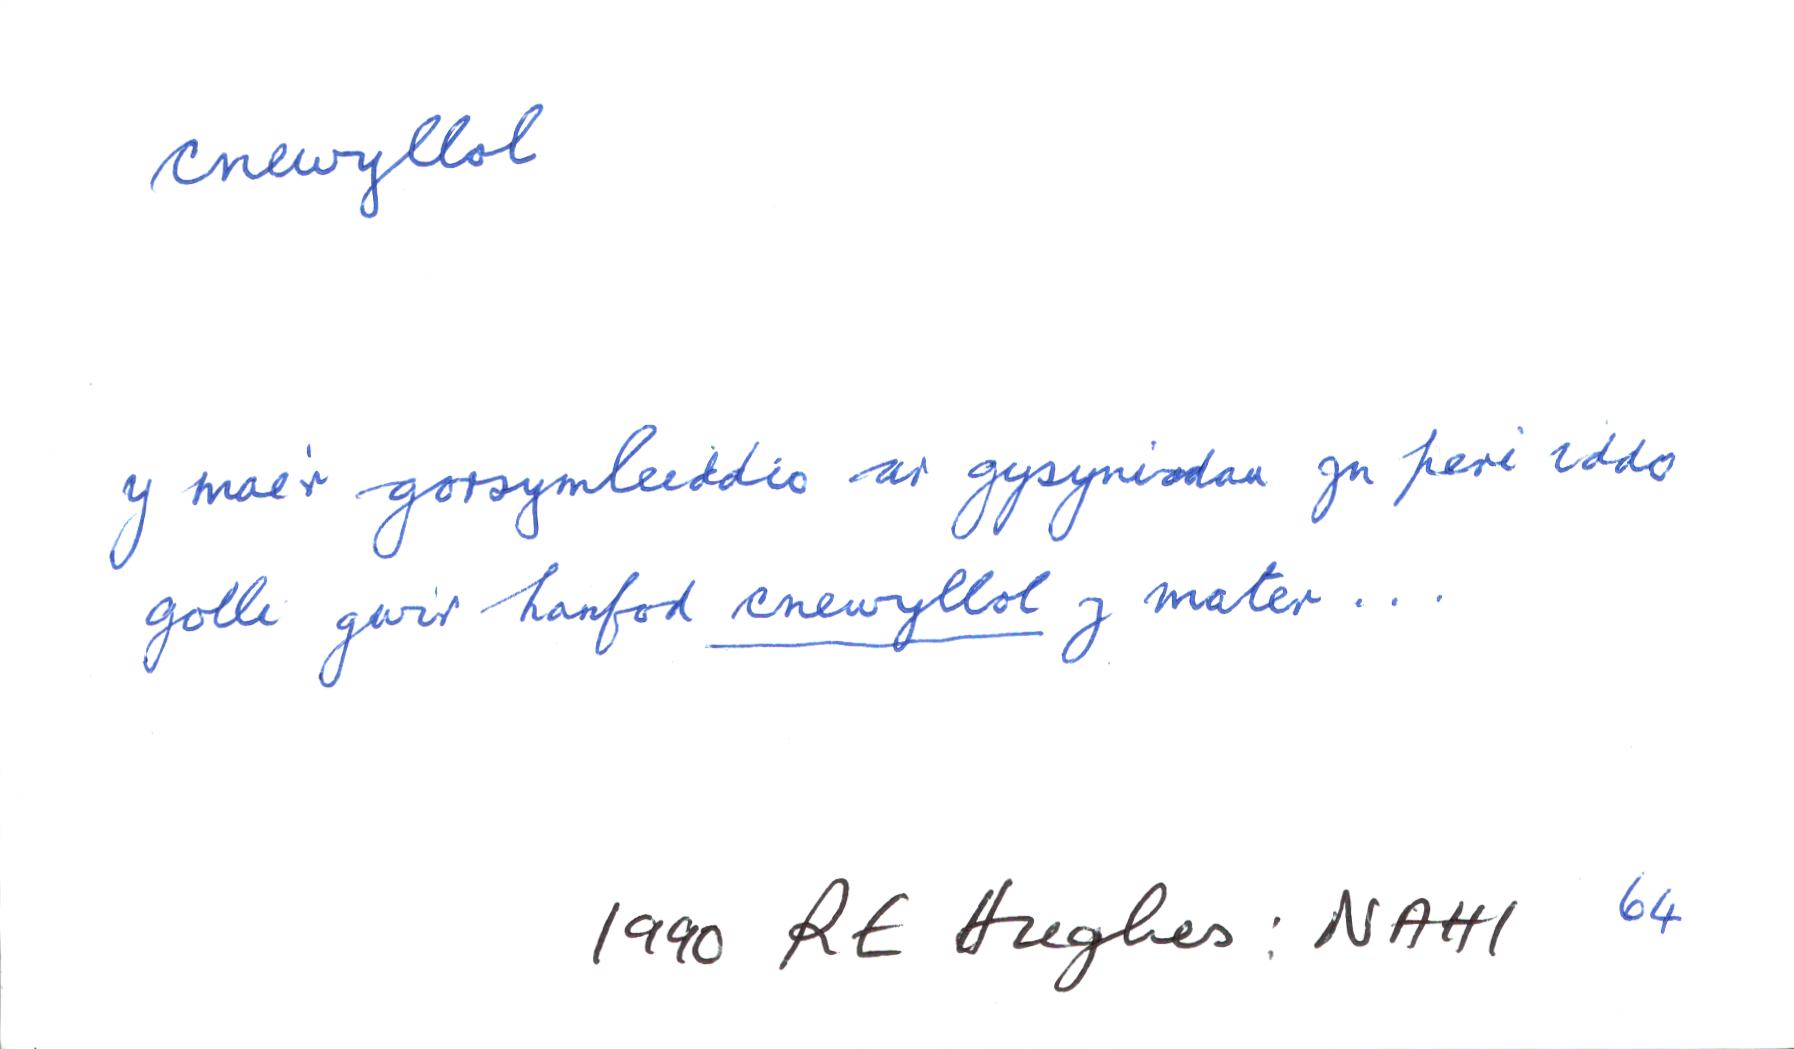 cnewyllol
y mae'r gorsymleiddio ar gysyniadau yn peri iddo
golli gwir hanfod cnewyllol y mater ...
1990 RE Hughes: NAHI 64